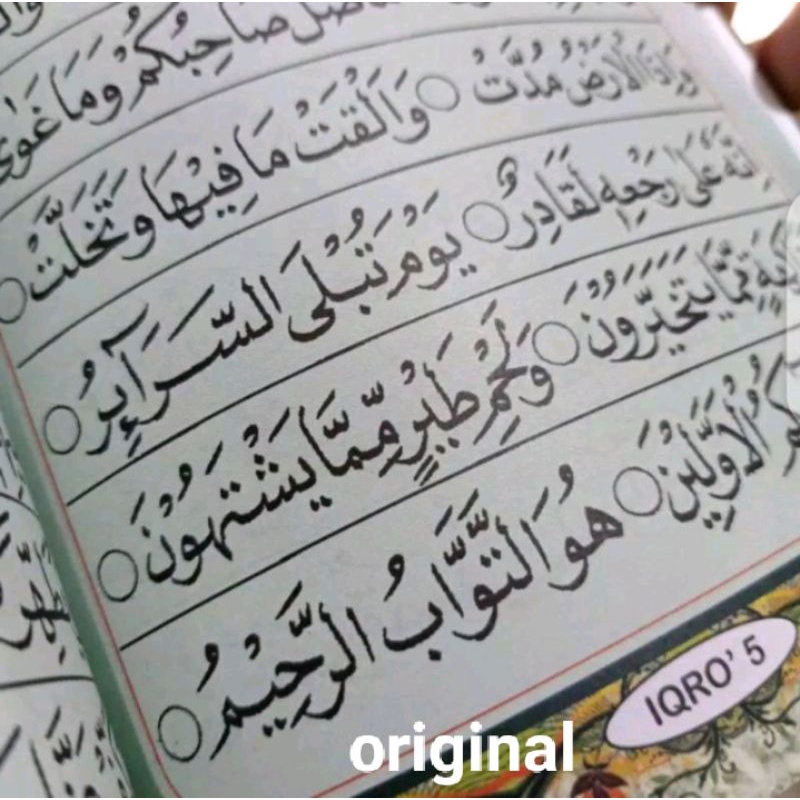 صَاحِبُكُمْ وَمَا غَوَى
وَإِذَا الْأَرْضُ مُدَّتْ ○ وَأَلْقَتْ مَا فِيْهَا وَتَخَلَّتْ ○
إِنَّهُ عَلَى رَجْعِهِ لَقَادِرٌ ○ يَوْمَ تُبْلَى السَّرَآئِرُ ○
مِّمَّا يَتَخَيَّرُوْنَ ○ وَلَحْمِ طَيْرٍ مِّمَّا يَشْتَهُوْنَ ○
الْأَوَّلِيْنَ ○ هُوَ التَّوَّابُ الرَّحِيْمُ ○
IQRO' 5
original